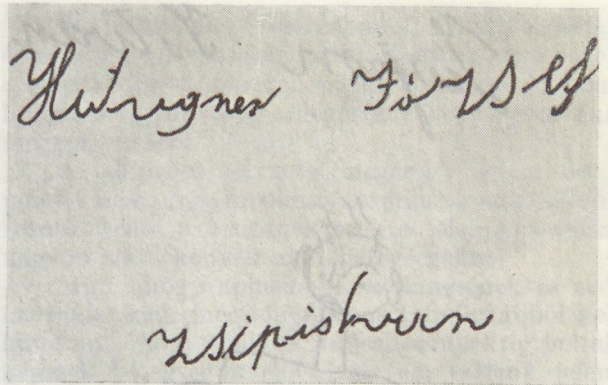 Hutvagner József
Zsipistvan